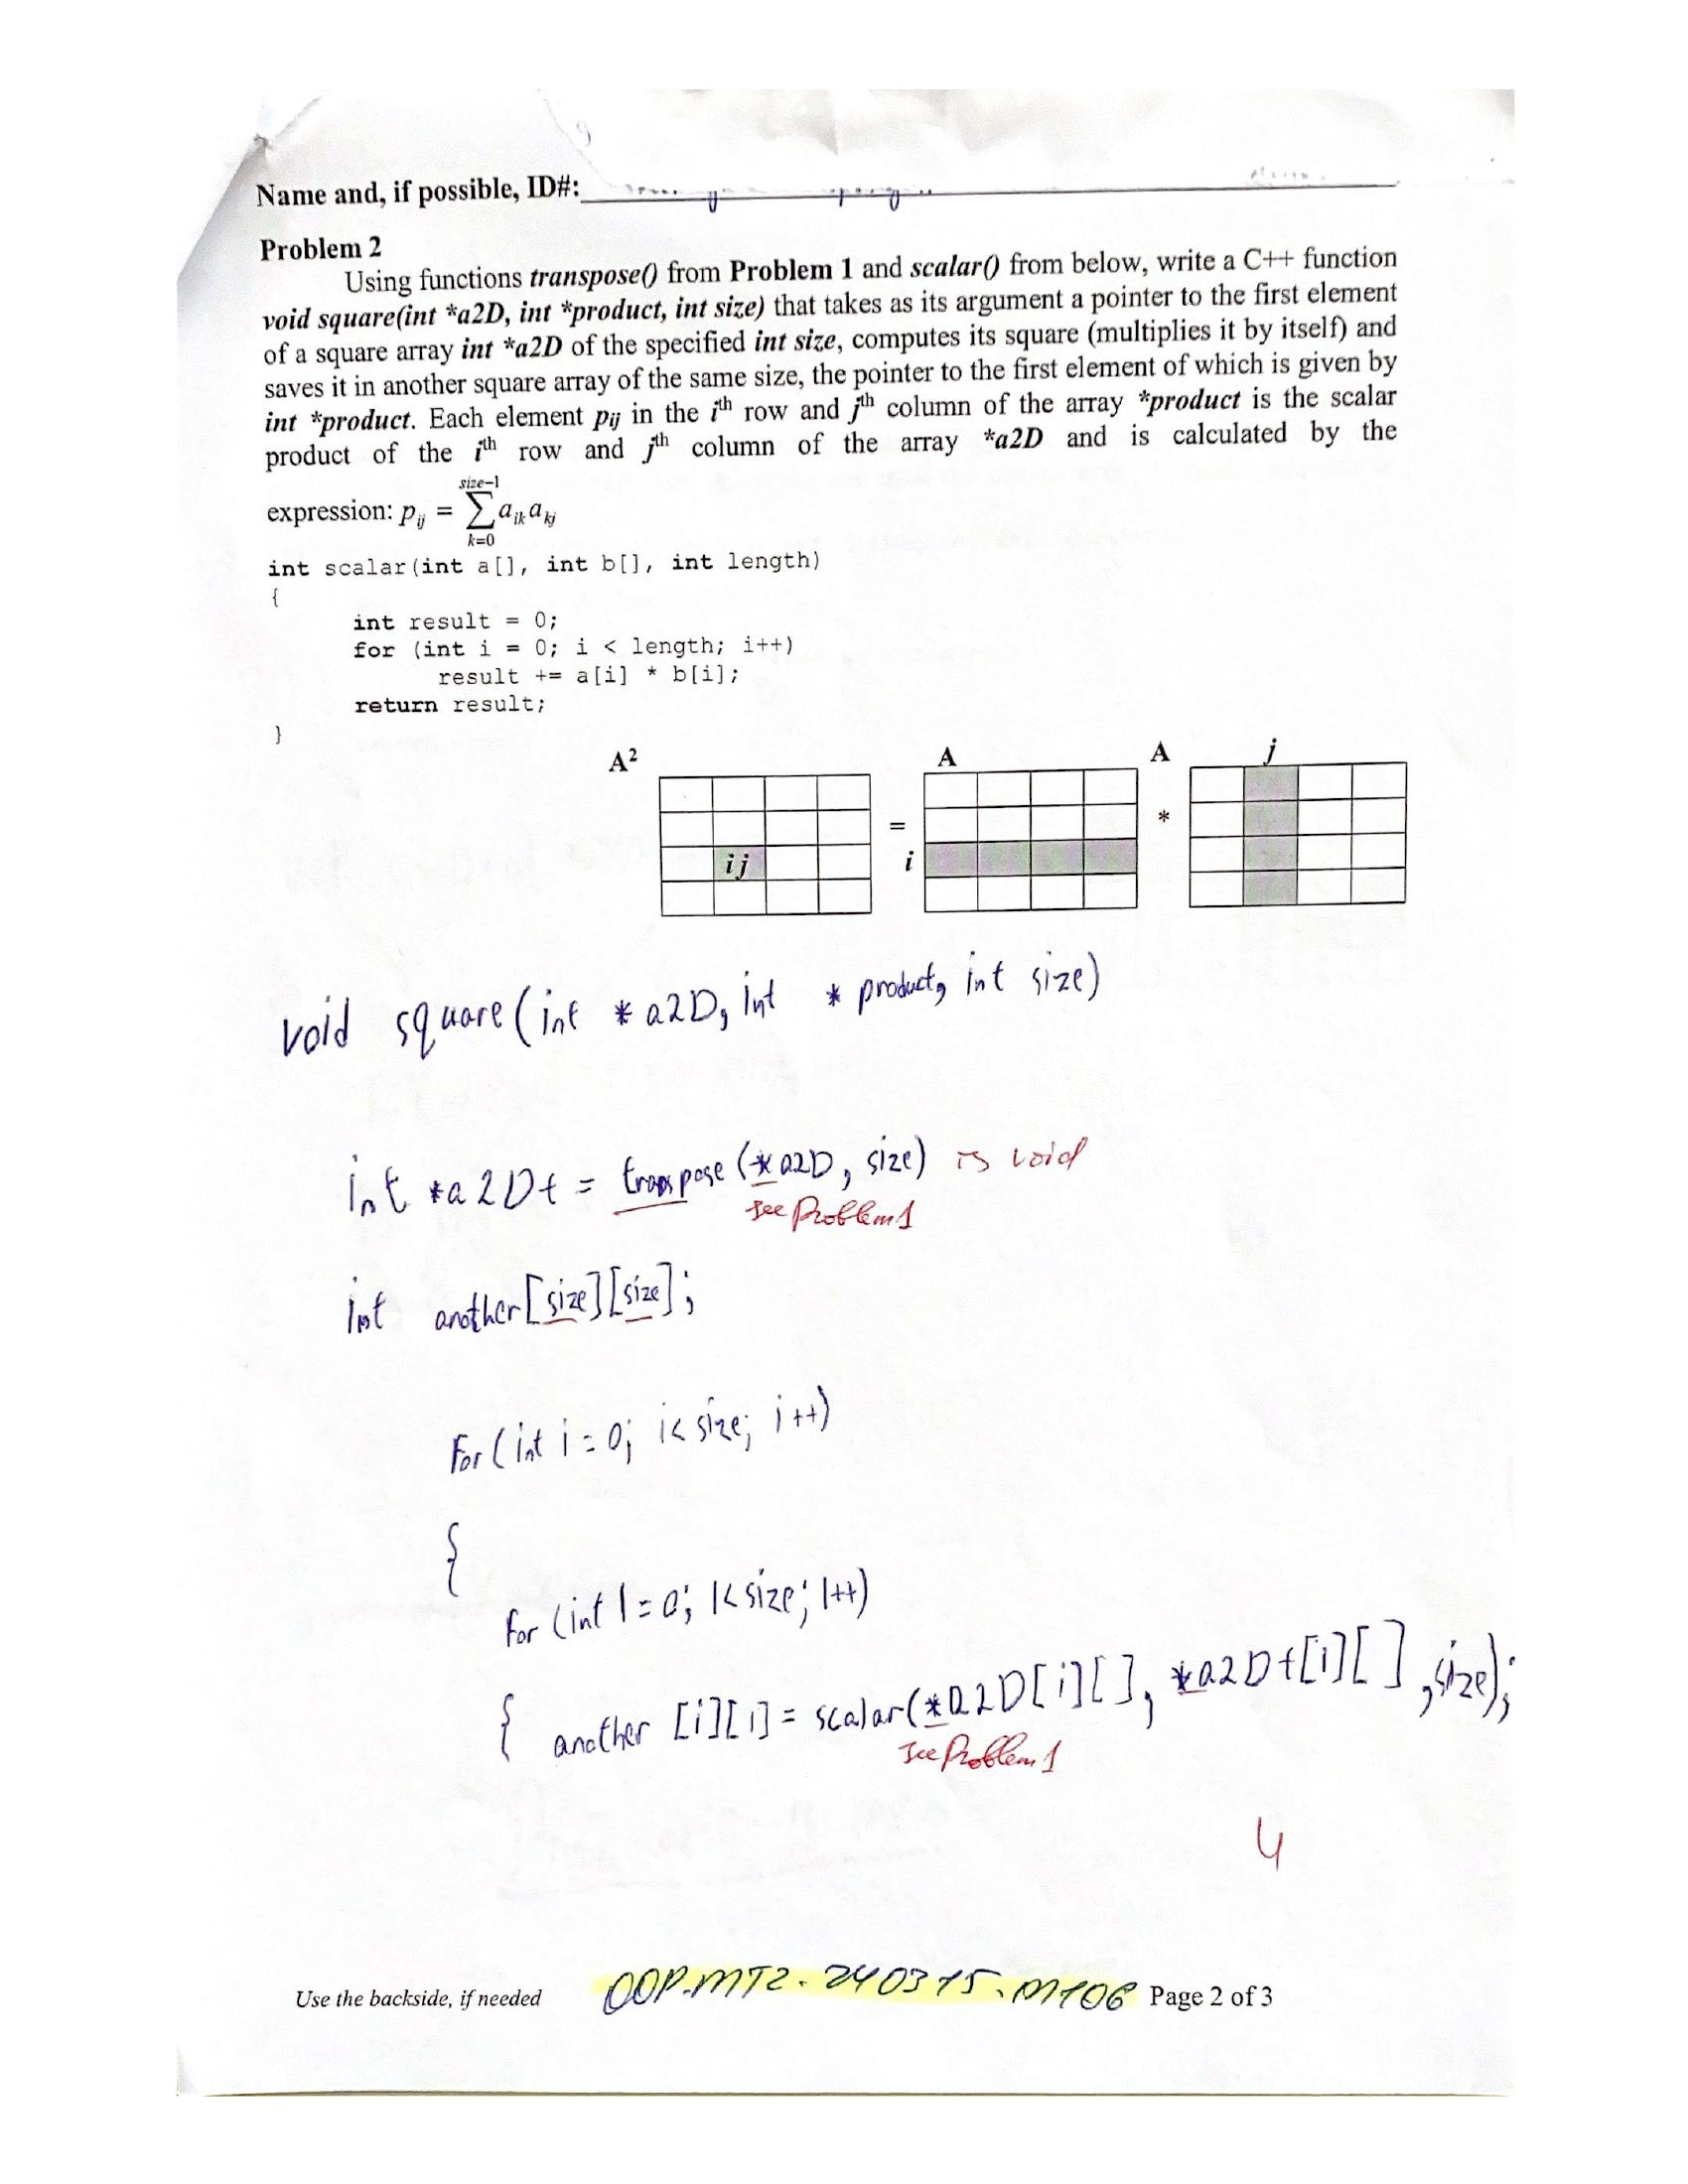 Name and, if possible, ID#:
Problem 2
Using functions transpose() from Problem 1 and scalar() from below, write a C++ function
void square(int *a2D, int *product, int size) that takes as its argument a pointer to the first element
of a square array int *a2D of the specified int size, computes its square (multiplies it by itself) and
saves it in another square array of the same size, the pointer to the first element of which is given by
int *product. Each element pij in the ith row and jth column of the array *product is the scalar
product of the ith row and jth column of the array *a2D and is calculated by the
size-1
expression: pij = ∑ aik akj
k=0
int scalar(int a[], int b[], int length)
{
int result = 0;
for (int i = 0; i < length; i++)
result += a[i] * b[i];
return result;
}
A² A A j
= *
ij i
void square(int *a2D, int * product, int size)
int *a2Dt = transpose (*a2D, size) is void
see Problem 1
int another[size][size];
For(int i=0; i<size; i++)
{
for (int l=0; l<size; l++)
{ another [i][l] = scalar(*a2D[i][], *a2Dt[l][], size);
see Problem 1
4
Use the backside, if needed OOP.MT2.240315.M106 Page 2 of 3